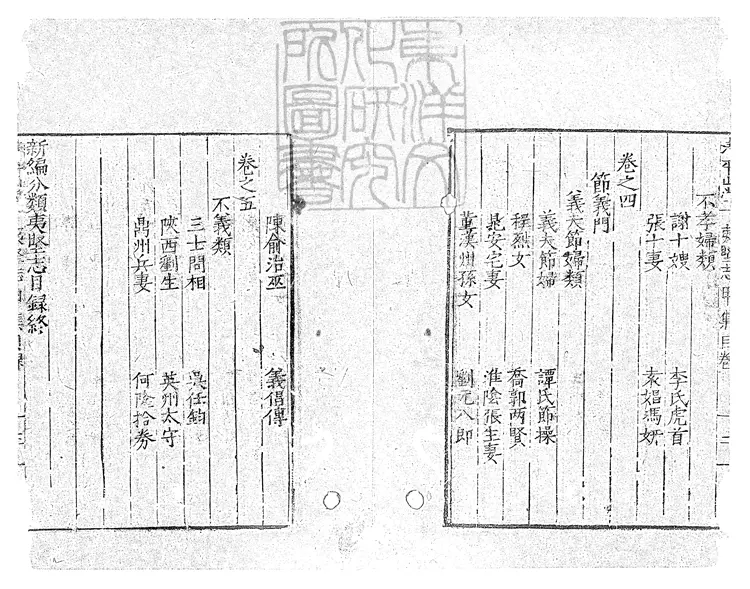 不孝婦類
謝十嫂　李氏虎首
張十妻　袁娼馮妍
卷之四
節義門
義夫節婦類
義夫節婦　譚氏節操
程烈女　喬郭兩賢
晁安宅妻　淮陰張生妻
董漢州孫女　劉元八郎
陳俞治巫　義倡傳
卷之五
不義類
三士問相　吳任鈞
陝西劉生　英州太守
鼎州兵妻　何隂拾券
新編分類夷堅志目錄終
東洋文
化研究
所圖書